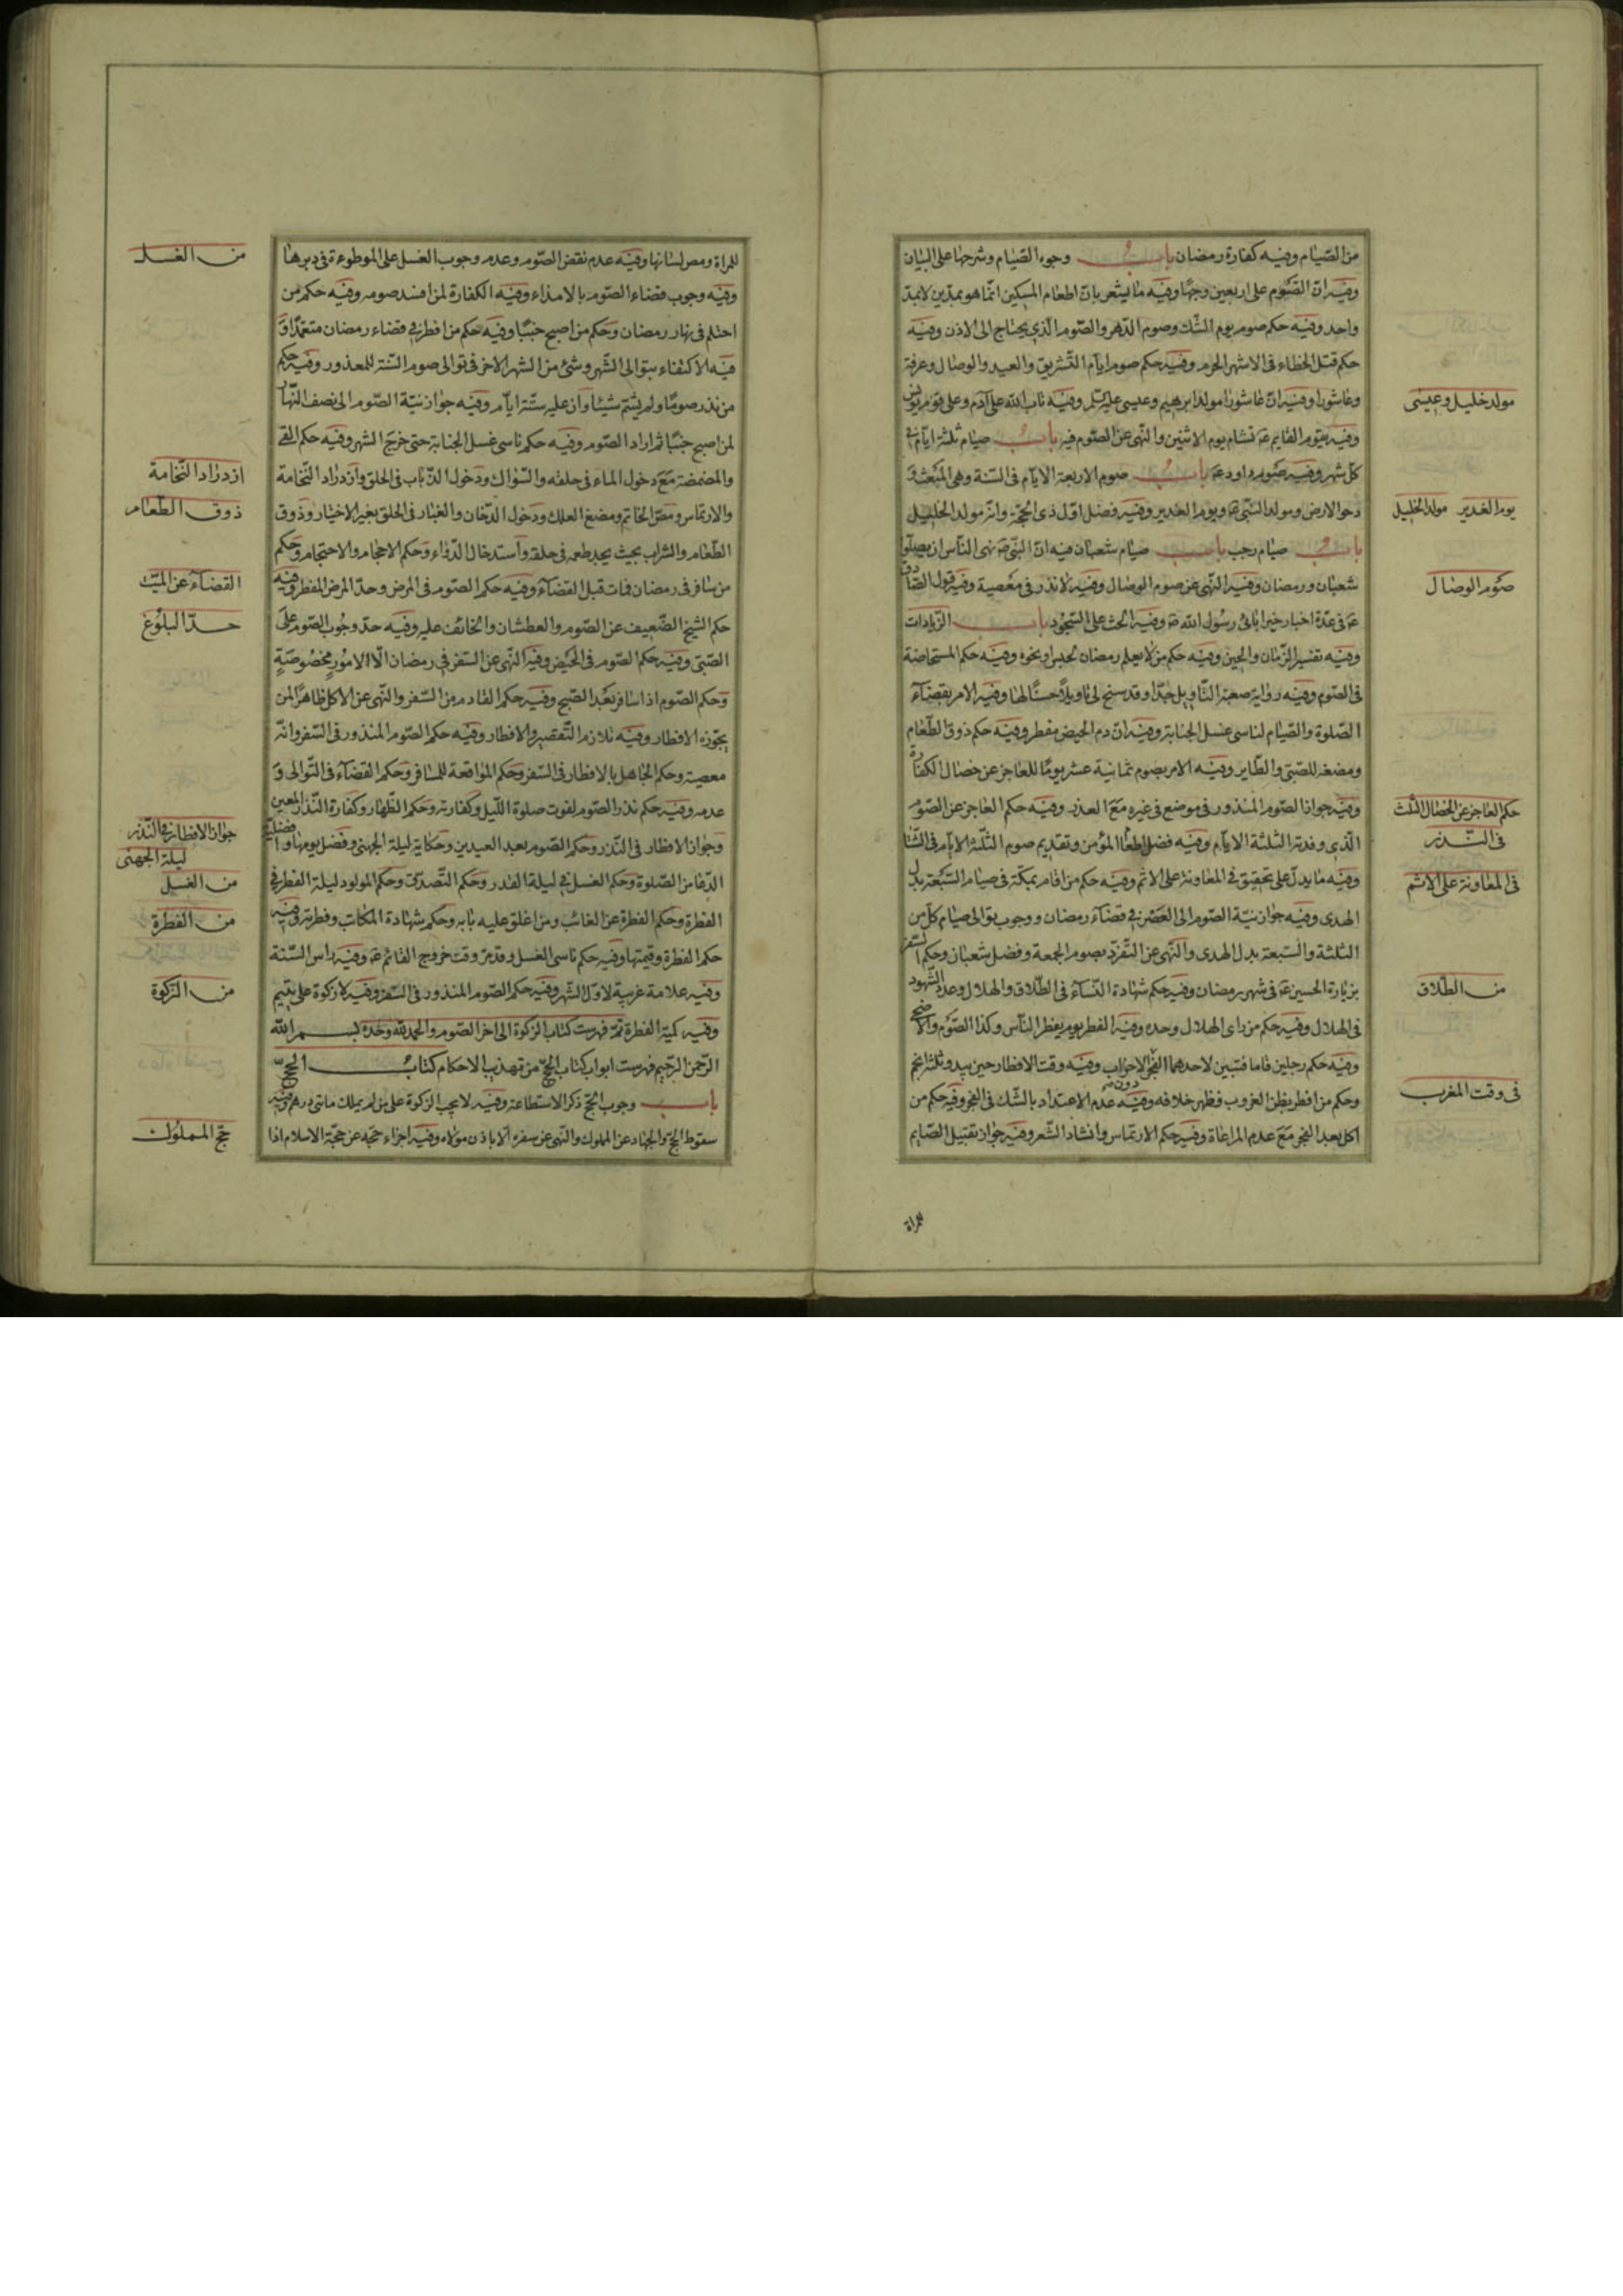 من الصّيام وفيه كفارة رمضان باب وجوه الصّيام وشرحها على البيان
وفيه انّ الصّوم على اربعين وجهًا وفيه ما يشعر بانّ اطعام المسكين انّما هو بمدّين لا بمدّ
واحد وفيه حكم صوم يوم الشّك وصوم الدّهر والصّوم الّذي يحتاج الى الاذن وفيه
حكم قتل الخطاء فى الاشهر الحرم وفيه حكم صوم ايّام التّشريق والعيد والوصال وعرفة
وعاشورا وفيه انّ عاشورا مولد ابرهيم وعيسى عليه السّلم وفيه تاب الله على آدم وعلى قوم يونس
مولد خليل وعيسى
وفيه يقوم القايم عَ تشام يوم الاثنين والنّهى عن الصّوم فيه باب صيام ثلثة ايّام فى
كلّ شهر وفيه صوم داود عَ باب صوم الاربعة الايّام فى السّنة وهى المبعث وَ
دحو الارض ومولد النّبى صَ ويوم الغدير وفيه فضل اوّل ذى الحجّة وانّه مولد الخليل
يوم الغدير مولد الخليل
باب صيام رجب باب صيام شعبان فيه انّ النّبى صَ نهى النّاس ان يصلوا
شعبان ورمضان وفيه النّهى عن صوم الوصال وفيه لا نذر فى معصية وفيه قول الصّادق
صوم الوصال
عَ فى عدّة اخبار خير ابائى رسول الله صَ وفيه الحث على السّجود باب الزّيادات
وفيه تفسير الزّمان والحين وفيه حكم من لا يعلم رمضان لحبس او نحوه وفيه حكم المستحاضة
فى الصّوم وفيه رواية صعبة التّاويل جدّا وقد سنح لى تاويلاً حسنًا لها وفيه الامر بقضآء
الصّلوة والصّيام لناسى غسل الجنابة وفيه انّ دم الحيض مفطر وفيه حكم ذوق الطّعام
ومضغه للصّبّى والطّاير وفيه الامر بصوم ثمانية عشر يومًا للعاجز عن خصال الكفارة
وفيه جواز الصّوم المنذور فى موضع فى غيره مع العذر وفيه حكم العاجز عن الصّوم
حكم العاجز عن الخصال الثّلث
فى النّذر
الّذى وفدية الثلثة الايّام وفيه فضل اطعام المؤمن وتقديم صوم الثّلثة الايّام فى الشّتا
وفيه ما يدلّ على تحقيق فى المعاونة على الاثم وفيه حكم من اقام بمكّة فى صيام السّبعة بدل
فى المعاونة على الاثم
الهدى وفيه جواز نيّة الصّوم الى العصر فى قضآء رمضان ووجوب توالى صيام كلّ من
الثلثة والسّبعة بدل الهدى والنّهى عن التّفرّد بصوم الجمعة وفضل شعبان وحكم السّفر
بزيارة الحسين عَ فى شهر رمضان وفيه حكم شهادة النّسآء فى الطّلاق والهلال وعدد الشّهود
من الطّلاق
فى الهلال وفيه حكم من راى الهلال وحده وفيه الفطر يوم يفطر النّاس وكذا الصّوم والاضحى
وفيه حكم رجلين قاما فتبين لاحدهما الفجر دون الاخر وفيه وقت الافطار حين يبدو ثلثة انجم
وحكم من افطر بظن الغروب فظهر خلافه وفيه عدم الاعتداد بالشّك فى الفجر وفيه حكم من
فى وقت المغرب
اكل بعد الفجر مع عدم المراعاة وفيه حكم الارتماس وانشاد الشّعر وفيه جواز تقبيل الصّايم
للمراة
للمراة ومص لسانها وفيه عدم نقض الصّوم وعدم وجوب الغسل على الموطوءة فى دبرها
من الغسل
وفيه وجوب قضاء الصّوم بالامذاء وفيه الكفارة لمن افسد صومه وفيه حكم من
احتلم فى نهار رمضان وحكم من اصبح جنبًا وفيه حكم من افطر فى قضاء رمضان متعمّدًا وَ
فيه الاكتفاء بتوالى الشّهر وشئ من الشهر الاخر فى توالى صوم السّتة للمعذور وفيه حكم
من نذر صومًا ولم يسّم شيئًا وان عليه ستّة ايّام وفيه جواز نيّة الصّوم الى نصف النّهار
لمن اصبح جنبًا ثم اراد الصّوم وفيه حكم ناسى غسل الجنابة حتى خرج الشهر وفيه حكم القى
والمضمضة مع دخول الماء فى حلقه والسّواك ودخول الذّباب فى الحلق وازدراد النّخامة
ازدراد النّخامة
والارتماس ومصّ الخاتم ومضغ العلك ودخول الدّخان والغبار فى الحلق بغير الاختيار وذوق
ذوق الطّعام
الطّعام والشراب بحيث يجد طعمه فى حلقه واستدخال الدّواء وحكم الاحجام والاحتجام وحكم
من سافر فى رمضان فمات قبل القضآء وفيه حكم الصّوم فى المرض وحدّ المرض المفطر وفيه
القضآء عن الميّت
حكم الشيخ الضّعيف عن الصّوم والعطشان والخائف عليه وفيه حدّ وجوب الصّوم على
حدّ البلوغ
الصّبّى وفيه حكم الصّوم فى الحيض وفيه النّهى عن السّفر فى رمضان الّا لامور مخصوصة
وحكم الصّوم اذا سافر بعد الصّبح وفيه حكم القادم من السّفر والنّهى عن الاكل ظاهرًا لمن
يجوز له الافطار وفيه تلازم التّقصير والافطار وفيه حكم الصّوم المنذور فى السّفر وانّه
معصية وحكم الجاهل بالافطار فى السّفر وحكم المواقعة للمسافر وحكم القضآء فى التّوالى وَ
عدمه وفيه حكم نذر الصّوم لفوت صلوة اللّيل وكفارته وحكم الظّهار وكفارة النّذر المعين
وجواز الافطار فى النّذر وحكم الصّوم بعد العيدين وحكاية ليلة الجهنى وفضل يومها وافضلية
جواز الافطار فى النّذر
ليلة الجهنى
الدّعا من الصّلوة وحكم الغسل فى ليلة القدر وحكم التّصدّق وحكم المولود ليلة الفطر فى
من الغسل
الفطرة وحكم الفطرة عن الغائب ومن اغلق عليه بابه وحكم شهادة المكاتب وفطرته وفيه
من الفطرة
حكم الفطرة وقيمتها وفيه حكم ناسى الغسل وقد مرّ وقت خروج القائم عَ وفيه راس السّنة
وفيه علامة غريبة لاوّل الشّهر وفيه حكم الصّوم المنذور فى السّفر وفيه لا زكوة على يتيم
من الزّكوة
وفيه كمية الفطرة تمّ فهرست كتاب الزكوة الى اخر الصّوم والحمد لله وحده بسم الله
الرّحمن الرّحيم فهرست ابواب كتاب الحجّ من تهذيب الاحكام كتاب الحجّ
باب وجوب الحج ذكر الاستطاعة وفيه لا يجب الزكوة على من لم يملك مائتى درهم وفيه
سقوط الحجّ والجهاد عن المملوك والنّهى عن سفره الّا باذن مولاه وفيه اجزاء حجّه عن حجّة الاسلام اذا
حجّ المملوك